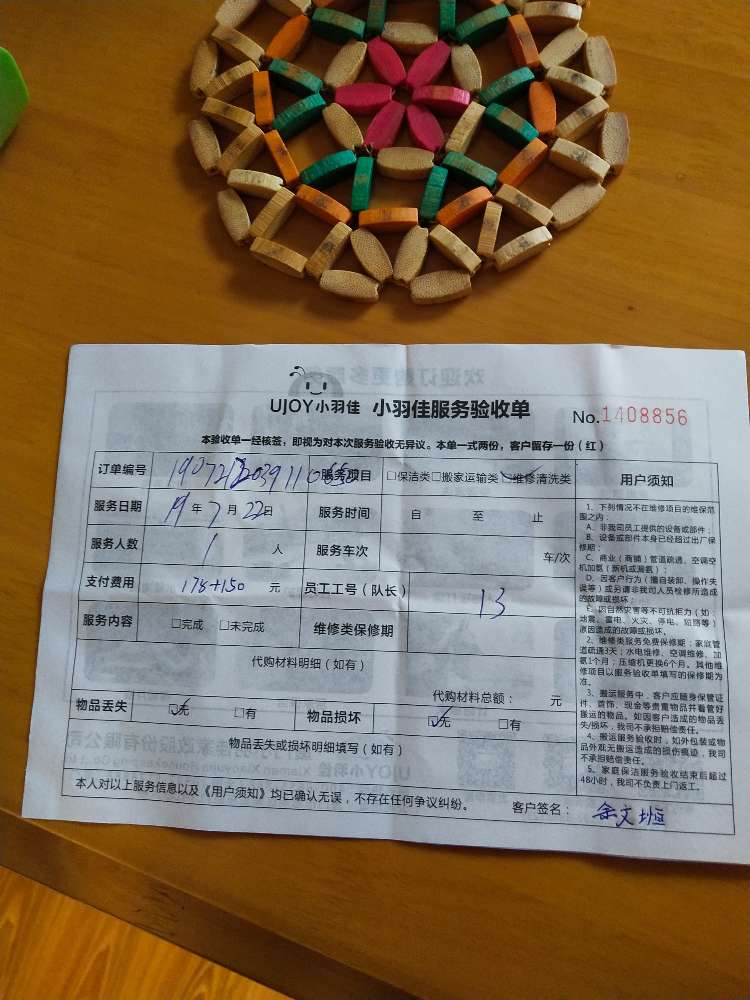 UJOY小羽佳 小羽佳服务验收单 No.1408856
本验收单一经核签，即视为对本次服务验收无异议。本单一式两份，客户留存一份（红）
订单编号 服务项目 □保洁类□搬家运输类☑维修清洗类
服务日期 19年7月22日 服务时间 自 至 止
服务人数 1 人 服务车次 车/次
支付费用 178+150 元 员工工号（队长） 13
服务内容 □完成 □未完成 维修类保修期
代购材料明细（如有）
代购材料总额： 元
物品丢失 ☑无 □有 物品损坏 ☑无 □有
物品丢失或损坏明细填写（如有）
本人对以上服务信息以及《用户须知》均已确认无误，不存在任何争议纠纷。 客户签名：
用户须知
1、下列情况不在维修项目的维保范
围之内：
A、非我司员工提供的设备或部件；
B、设备或部件本身已经超过出厂保
修期；
C、商业（商铺）管道疏通、空调空
机加氨（新机或漏氨）；
D、因客户行为（擅自装卸、操作失
误等）或另请非我司人员检修所造成
的故障或损坏；
E、因自然灾害等不可抗拒力（如：
地震、雷电、火灾、停电、短路等）
原因造成的故障或损坏。
2、维修类服务免费保修期：家庭管
道疏通3天；水电维修、空调维修、加
氨1个月；压缩机更换6个月。其他维
修项目以服务验收单填写的保修期为
准。
3、搬运服务中，客户应随身保管证
件、首饰、现金等贵重物品并看管好
搬运的物品。如因客户造成的物品丢
失/损坏，我司不承担赔偿责任。
4、搬运服务验收时，如外包装或物
品外观无搬运造成的损伤痕迹，我司
不承担赔偿责任。
5、家庭保洁服务验收结束后超过
48小时，我司不负责上门返工。